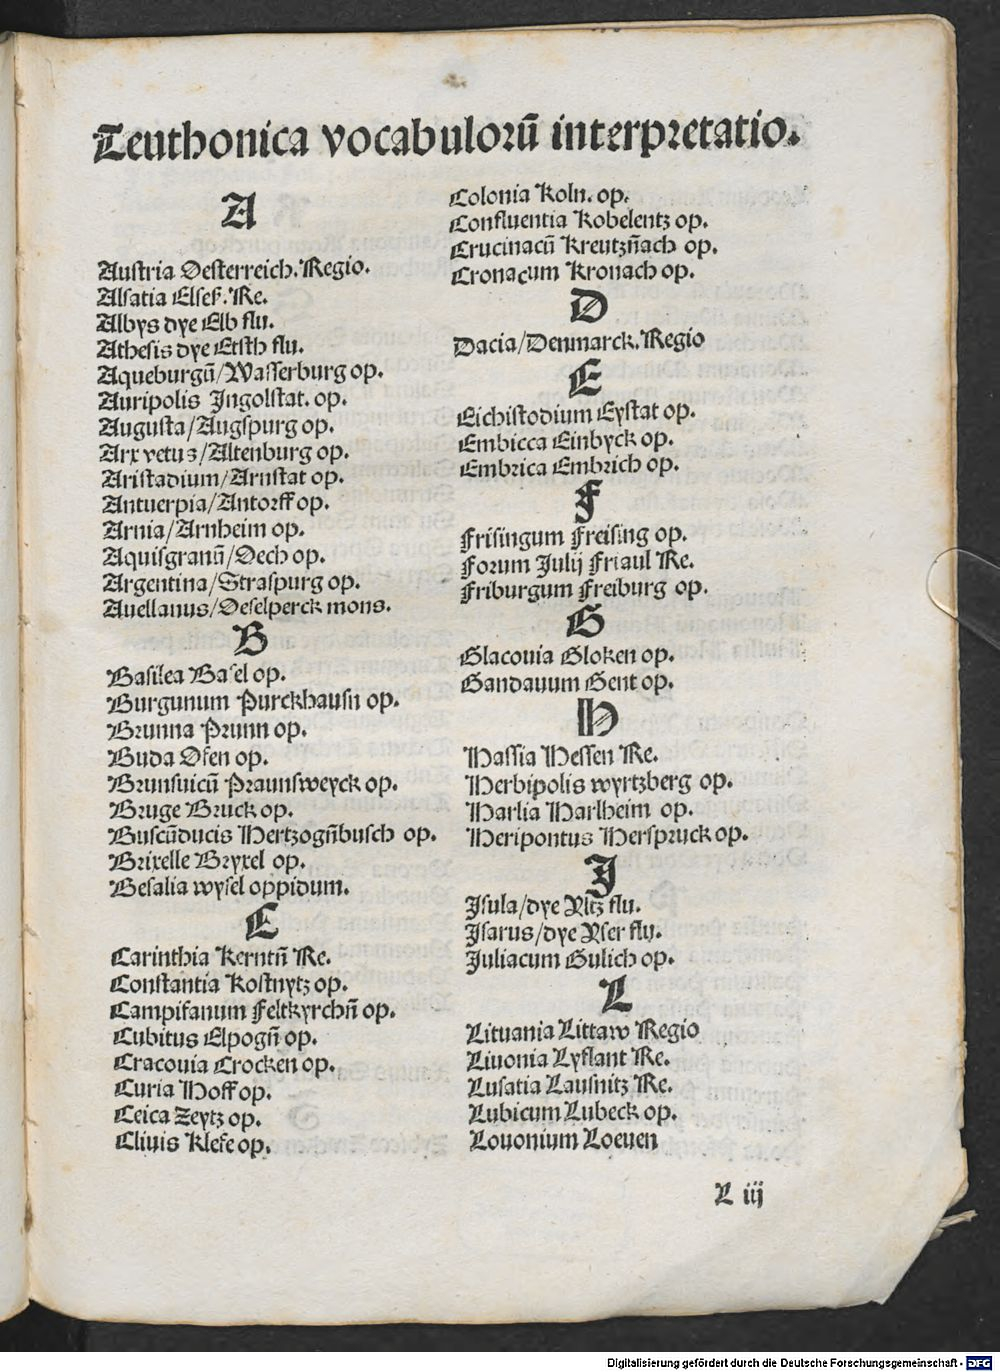 Teuthonica vocabulorū interpretatio.
A
Austria Oesterreich. Regio.
Alsatia Elseß. Re.
Albys dye Elb flu.
Athesis dye Etsth flu.
Aqueburgū/Wasserburg op.
Auripolis Ingolstat. op.
Augusta/Augspurg op.
Arx vetus/Altenburg op.
Aristadium/Arnstat op.
Antuerpia/Antorff op.
Arnia/Arnheim op.
Aquisgranū/Oech op.
Argentina/Straspurg op.
Auellanus/Heselperck mons.
B
Basilea Basel op.
Burgunum Purckhausn op.
Brunna Prunn op.
Buda Ofen op.
Brunsuicū Praunsweyck op.
Bruge Bruck op.
Buscūducis Hertzogn̄busch op.
Brixelle Bryxel op.
Besalia wysel oppidum.
C
Carinthia Kerntn̄ Re.
Constantia Kostnytz op.
Campifanum Feltkyrchn̄ op.
Cubitus Elpogn̄ op.
Cracouia Crocken op.
Curia Hoff op.
Ceica Zeytz op.
Cliuis Klefe op.
Colonia Koln. op.
Confluentia Kobelentz op.
Crucinacū Kreutzn̄ach op.
Cronacum Kronach op.
D
Dacia/Denmarck. Regio
E
Eichistodium Eystat op.
Embicca Einbyck op.
Embrica Embrich op.
F
Frisingum Freising op.
Forum Julij Friaul Re.
Friburgum Freiburg op.
G
Glacouia Gloken op.
Gandauum Gent op.
H
Hassia Hessen Re.
Herbipolis wyrtzberg op.
Harlia Harlheim op.
Heripontus Herspruck op.
J
Isula/dye Yltz flu.
Isarus/dye Yser flu.
Juliacum Gulich op.
L
Lituania Littaw Regio
Liuonia Lyflant Re.
Lusatia Lausnitz Re.
Lubicum Lubeck op.
Louonium Loeuen
L iij
Digitalisierung gefördert durch die Deutsche Forschungsgemeinschaft - DFG